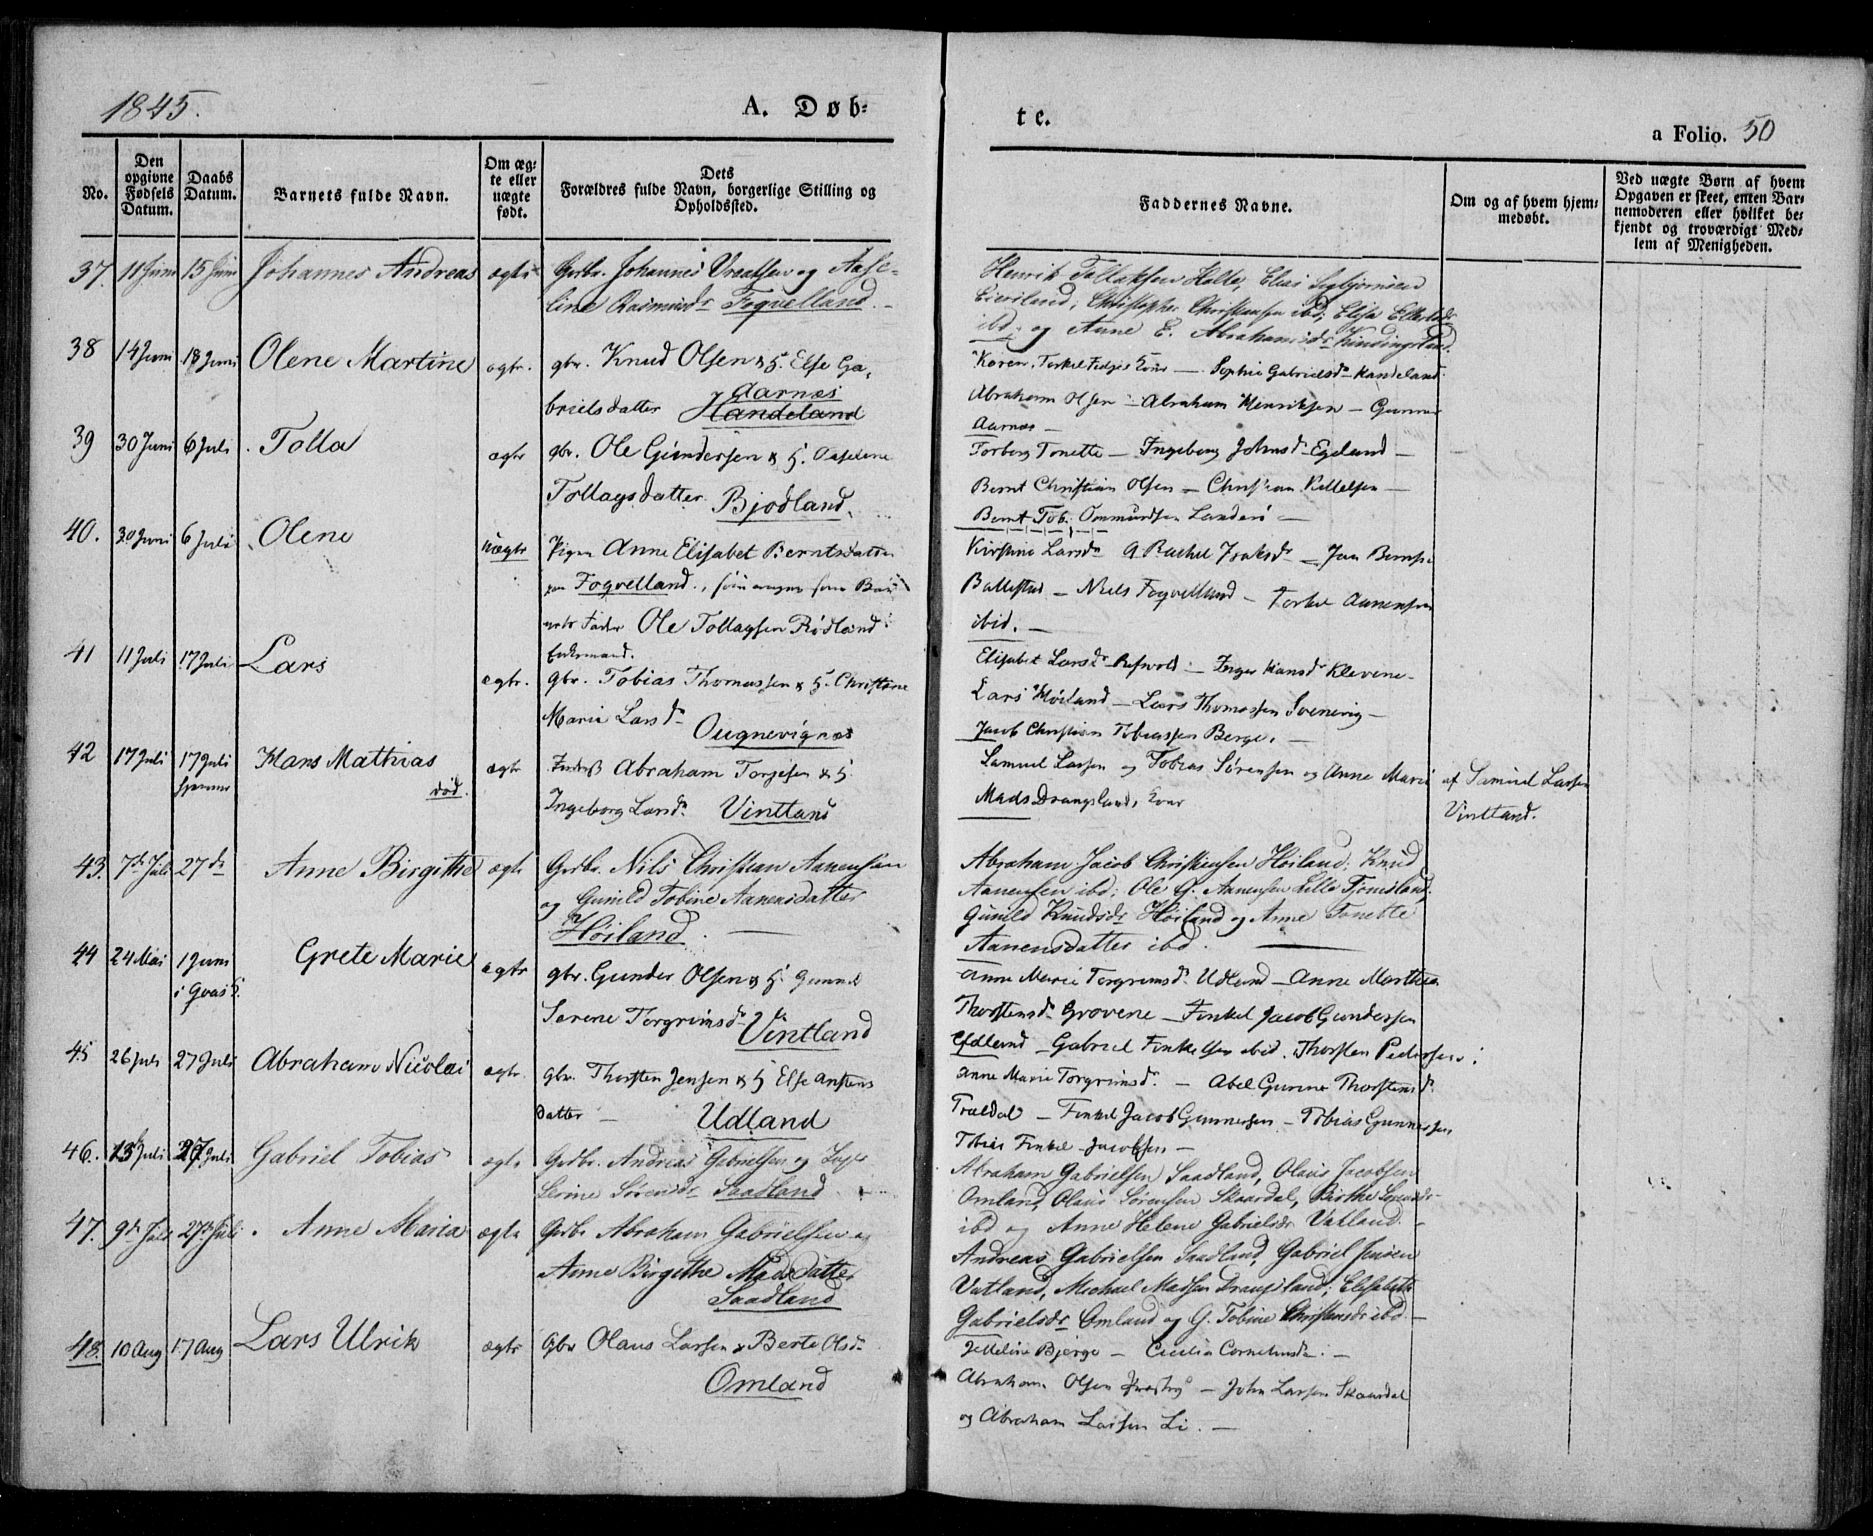 1845.
A. Døb=
te.
a Folio. 50
No.
Den opgivne Fødsels Datum.
Daabs Datum.
Barnets fulde Navn.
Om æg= te eller uægte født.
Dets Forældres fulde Navn, borgerlige Stilling og Opholdssted.
Faddernes Navne.
Om og af hvem hjem= medøbt.
Ved uægte Børn af hvem Opgaven er skeet, enten Bar= nemoderen eller hvilket be= kjendt og troværdigt Med= lem af Menigheden.
37. 11 Juni 15 Juni Johannes Andreas ægte Grdbr. Johannes og Aase=
line Rasmusdr Foqvelland
Henrik Tollaksen Helle, Elias Sigbjørnsen
Eieiland, Christopher Christensen ibd, Elisa
ibd. og Anne E. Abrahamsdr Kundingsland.
38 14 Juni 18 Juni Olene Martine ægte. gbr. Knud Olsen & H. Else Ga=
Aarnæs
brielsdatter Handeland
Karen, Torkel Fedges Kone — Sophie Gabrielsdr Handeland.
Abraham Olsen — Abraham Henriksen — Gunner
Aarnæs —
39 30 Juni 6 Juli Tolla ægte gbr. Ole Gundersen & H. Aaselene
Tollagsdatter Bjodland.
Torborg Tonette — Ingeborg Johnsdr Egeland —
Bernt Christian Olsen — Christian Kittelsen —
Bernt Tob. Ommundsen Landers —
40. 30 Juni 6 Juli Olene uægte Pigen Anne Elisabet Berntsdatter
paa Foqvelland, som angav som Bar=
nets Fader Ole Tollagsen Rødland
Enkemand.
Kirstine Larsdr G. Rachel Isaksdr — Jan Bernts.
Ballestad — Niels Foqvelland — Torkel Aanensen
ibid. —
41 11 Juli 17 Juli Lars ægte. gbr. Tobias Thomassen & H. Christine
Marie Larsdr Ougnevignes
Elisabet Larsdr Refvold — Inger Hansdr Klevene —
Lars Høiland — Lars Thomassen Svenevig —
Jacob Christian Tobiassen Berge. —
42 17 Juli 17 Juli Hans Mathias ægte Abraham Torgesen & H.
hjemme død.
Ingeborg Larsdr. Vintland
Samuel Larsen og Tobias Sørensen og Anne Marie
Mads Drangslands Kone
af Samuel Larsen
Vintland.
43. 7de Juli 27de Anne Birgithe ægte Grdbr. Nils Christian Aanensen
og Gunild Tobine Aanensdatter
Høiland. —
Abraham Jacob Christensen Høiland; Knud
Aanensen ibd; Ole G. Aanensen Lille Fjomsland,
Gunild Knudsdr Høiland og Anne Tonette
Aanensdatter ibd. —
44 24 Mai 1 Juni Grete Marie ægte gbr. Gunder Olsen & H. Gunnild
Serene Torgrimsdr Vintland
Anne Marie Torgrimsdr Udland — Anne Marthea
Thorstensdr Grovene — Finkel Jacob Gundersen
Gabriel Finkelsen ibid. Thorsten Pedersen
45 26 Juli 27 Juli Abraham Nicolai ægte. gbr. Thorsten Jensen & H Else Anstens
datter — Udland
Anne Marie Torgrimsdr. — Abel Gurine Thorstensdr.
Trældal — Finkel Jacob Gunnersen — Tobias Gunnersen
Tobias Finkel Jacobsen —
46. 13 Juli 27 Juli Gabriel Tobias ægte Grdbr. Andreas Gabrielsen og
Serine Sørensdr Saadland.
Abraham Gabrielsen Saadland, Olaus Jacobsen
Omland, Olaus Sørensen Skaardal, Birthe Sørensdr
ibd og Anne Helene Gabrielsdr Vatland. —
47. 9de Juli 27de Juli Anne Maria ægte Grdbr Abraham Gabrielsen og
Anne Birgithe Madsdatter
Saadland
Andreas Gabrielsen Saadland, Gabriel Jensen
Vatland, Michael Madsen Drangsland; Elisabeth
Gabrielsdr Omland og G. Tobine Christensdr ibd. —
48. 10 Aug 17 Aug Lars Ulrik ægte gbr Olaus Larsen & Berte Olsdr
Omland
Bjerge — Cecilia Corneliusdr. —
Abraham Olsen — John Larsen Skaardal
og Abraham Larsen Li. —